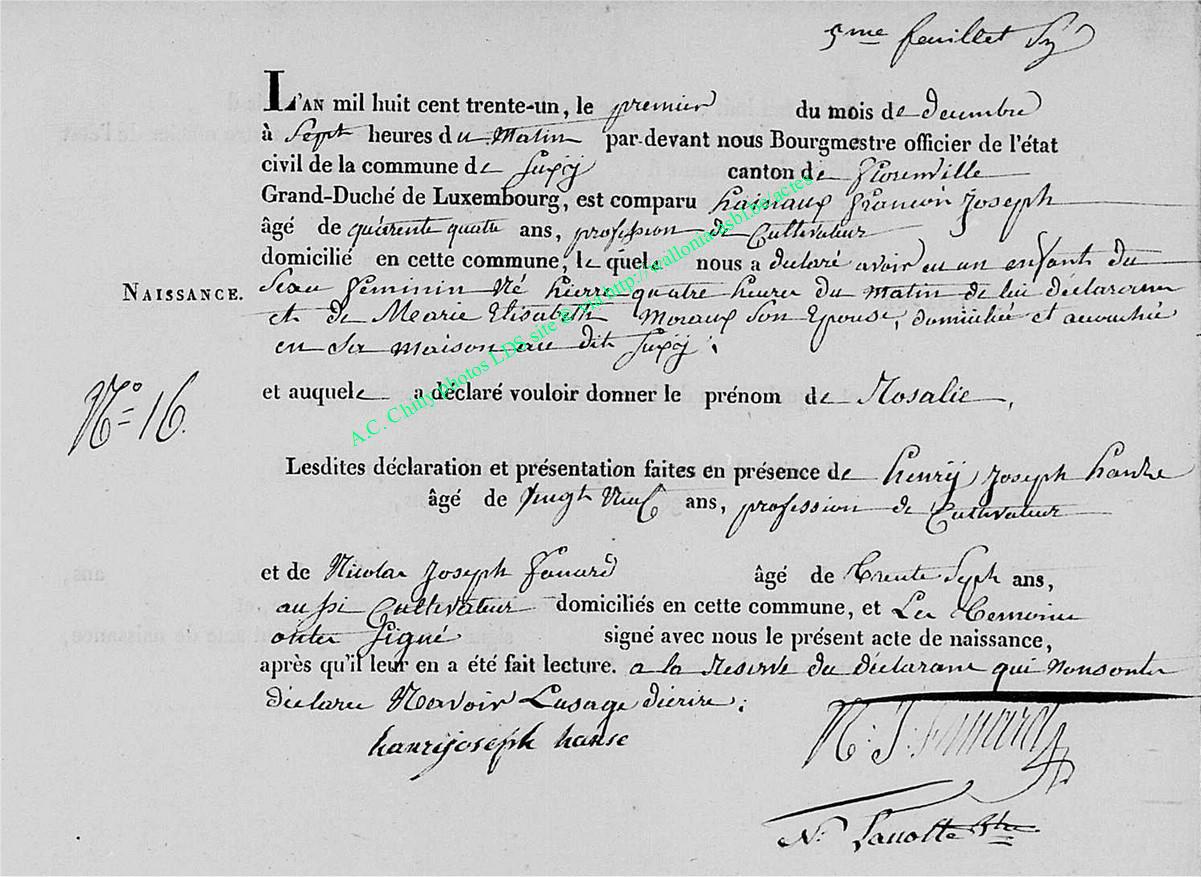 5me feuillet
L'AN mil huit cent trente-un, le premier du mois de decembre
à Sept heures du Matin par-devant nous Bourgmestre officier de l'état
civil de la commune de Suxÿ canton de Florenville
Grand-Duché de Luxembourg, est comparu hainaux françois Joseph
âgé de quarente quatre ans, profession de Cultivateur
domicilié en cette commune, le quele nous a déclaré avoir eu un enfants du
NAISSANCE. Sexe feminin Né hierre quatre heures du Matin de lui declarant
et de Marie Elisabeth Moraux Son Epouse, domiciliée et accouchée
en Sa maison au dit Suxÿ;
N° = 16.
et auquele a déclaré vouloir donner le prénom de Rosalie,
Lesdites déclaration et présentation faites en présence de henrÿ Joseph hanse
âgé de Vingt Neuf ans, profession de Cultivateur
et de Nicolas Joseph Fonard âgé de trente Sept ans,
aussi Cultivateur domiciliés en cette commune, et Les temoins
onter Signé signé avec nous le présent acte de naissance,
après qu'il leur en a été fait lecture. a la Reserve du déclarant qui Nousonter
déclaree Navoir Lusage diecrire;
hanrijoseph hanse
N: J: Fonard
N: Lanotte
A.C. Chiny photos LDS site © via http://wallonia.asbl.be/actes